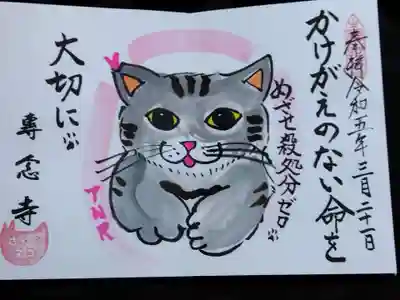 奉拝 令和五年 三月二十一日
かけがえのない命を
めざせ殺処分ゼロ
TNR
大切に
專念寺